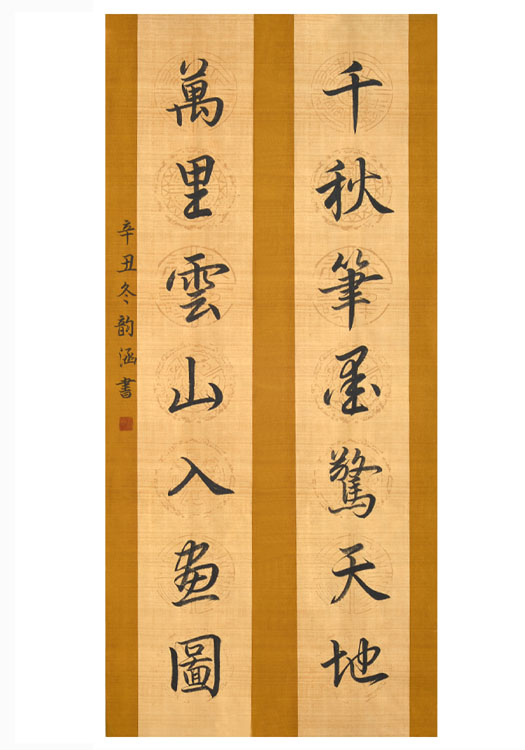 千秋筆墨驚天地
萬里雲山入畫圖
辛丑冬韵涵書